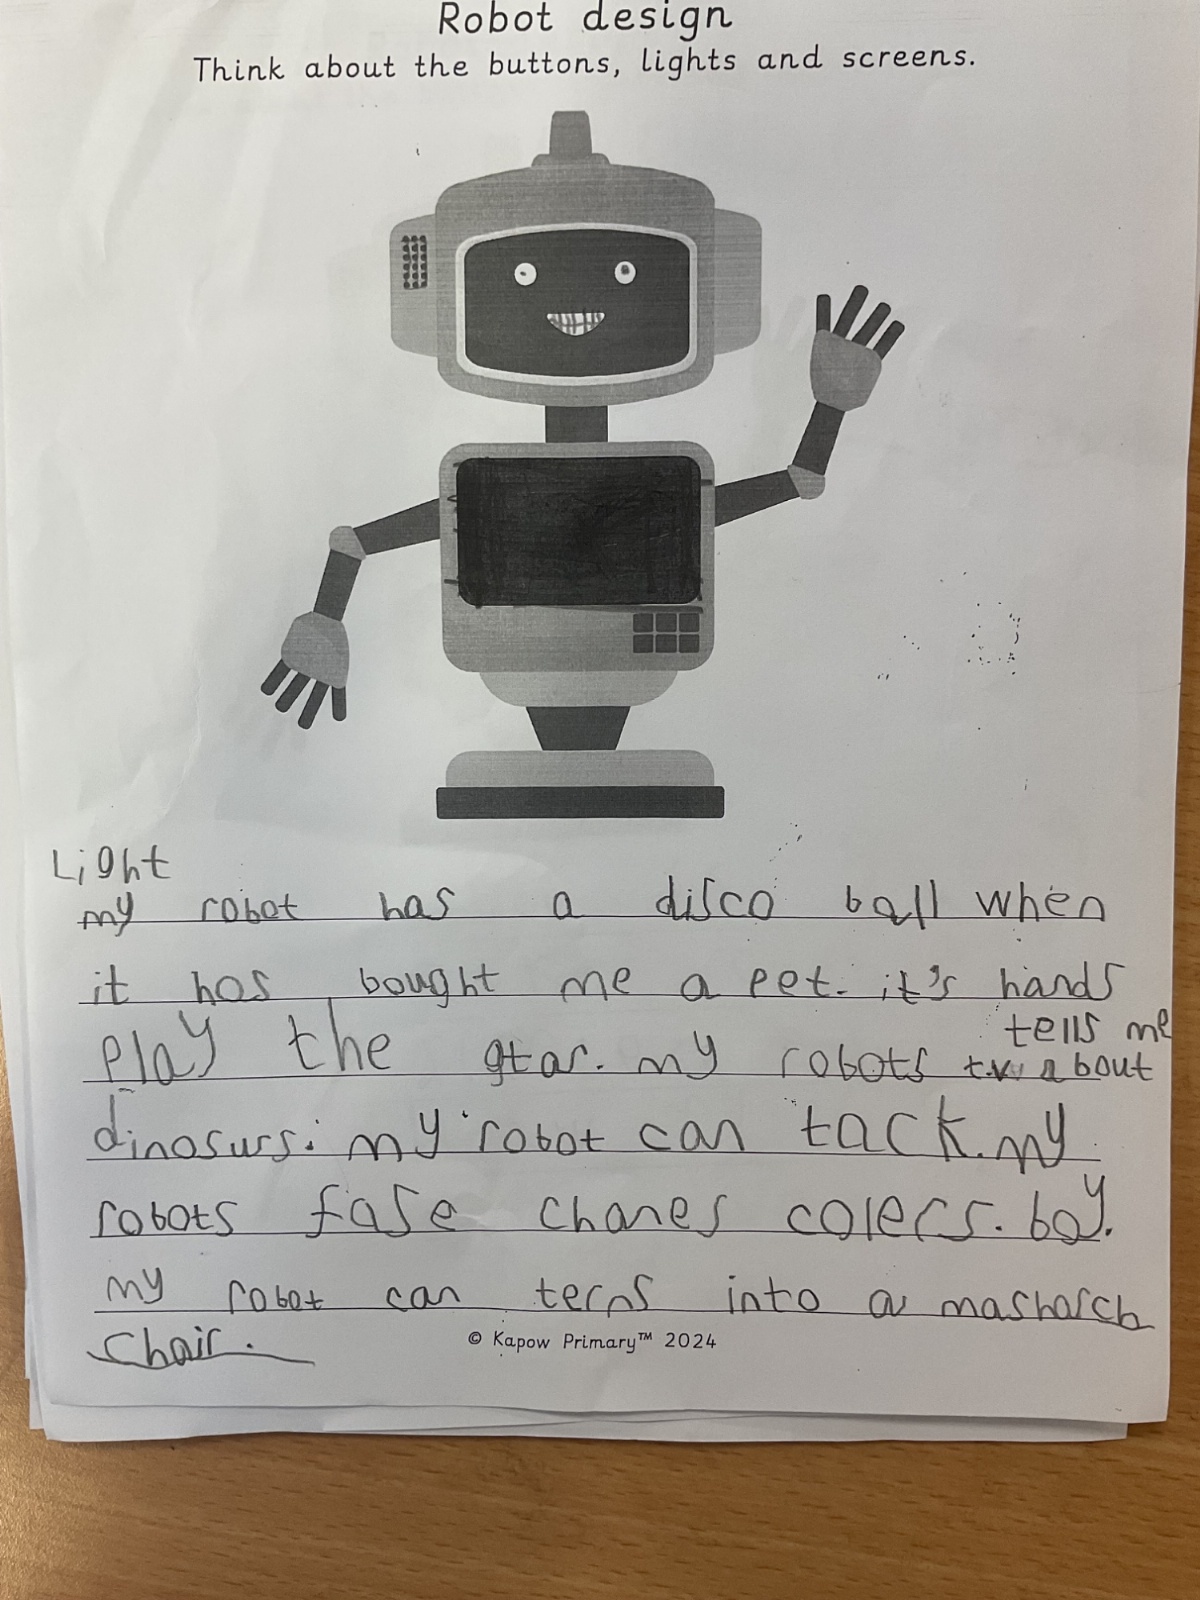 Robot design
Think about the buttons, lights and screens.
Light
my robot has a disco ball when
it has bought me a pet. it's hands
tells me
play the gtar. my robots about
dinosurs. my robot can tack. my
robots fase chanes colers. boy.
my robot can terns into a masharch
chair.
© Kapow Primary™ 2024